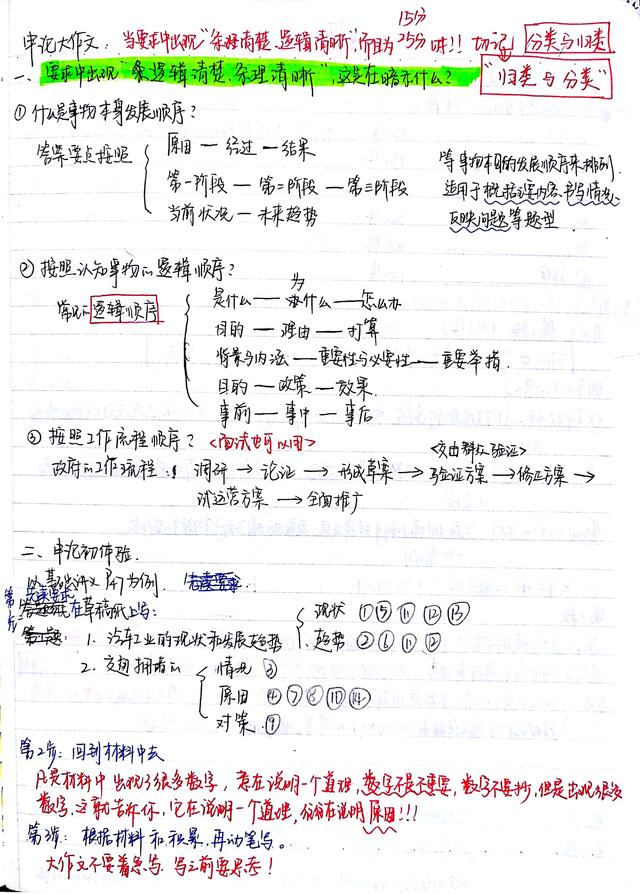 15分
申论大作文：当要求中出现“条理清楚、逻辑清晰”，而且为25分时!! 切记 分类与归类
一、要求中出现“条逻辑清楚，条理清晰”，这是在暗示什么？ “归类与分类”
① 什么是事物本身发展顺序？
答案要点按照
原因 — 经过 — 结果
第一阶段 — 第二阶段 — 第三阶段
当前状况 — 未来趋势
等事物本身的发展顺序来排列.
适用于概括主要内容、书写情况、
反映问题等题型.
② 按照认知事物的逻辑顺序？
常见的逻辑顺序
为
是什么 — 什么 — 怎么办
目的 — 理由 — 打算
背景与内涵 — 重要性与必要性 — 重要举措.
目的 — 政策 — 效果.
事前 — 事中 — 事后
③ 按照工作流程顺序？ <面试也可以用>
<交由群众验证>
政府的工作流程: 调研 → 论证 → 形成草案 → 验证方案 → 修正方案 →
试运营方案 → 全面推广
二、申论初体验.
以基础讲义 为例.
第1步：
在草稿纸上写:
1. 汽车工业的现状和发展趋势
现状 ① ⑤ ⑪ ⑫ ⑬
趋势 ② ⑥ ⑪ ⑫
2. 交通拥堵的
情况 ③
原因 ④ ⑦ ⑧ ⑩ ⑭
对策 ⑨
第2步：回到材料中去
凡是材料中出现了很多数字，意在说明一个道理，数字不是不重要，数字不要抄，但是出现很多
数字，这就告诉你，它在说明一个道理，往往在说明原因!!!
第3步：根据材料和积累，再动笔写。
大作文不要着急写，写之前要思考！